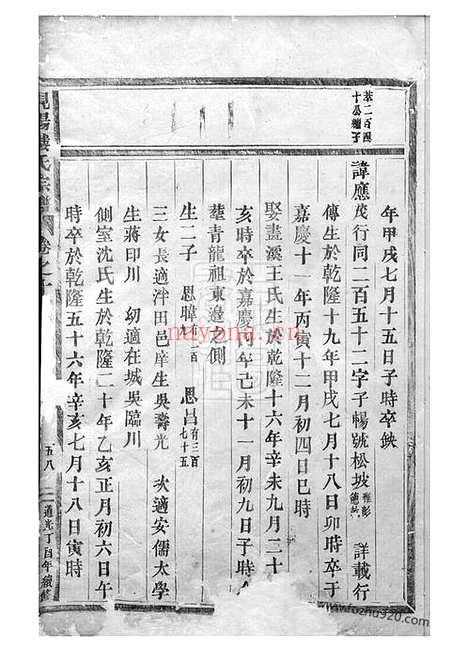 茶二百四
十公繼子
年甲戌七月十五日子時卒缺
諱應茂行同二百五十二字子暢號松坡
詳載行
傳生於乾隆十九年甲戌七月十八日卯時卒于
嘉慶十一年丙寅十二月初四日巳時
娶畫溪王氏生於乾隆十六年辛未九月二十
亥時卒於嘉慶四年己未十一月初九日子時
塟青龍祖東邊之側
生二子 思暐 思昌有三百七十五
三女長適泮田邑庠生吳壽光 次適安儒太學
生蔣印川 幼適在城吳臨川
側室沈氏生於乾隆二十年乙亥正月初六日午
時卒於乾隆五十六年辛亥七月十八日寅時
氏宗譜
卷之
五八
道光丁酉年續修
nayona.cn
www.fozhu920.com